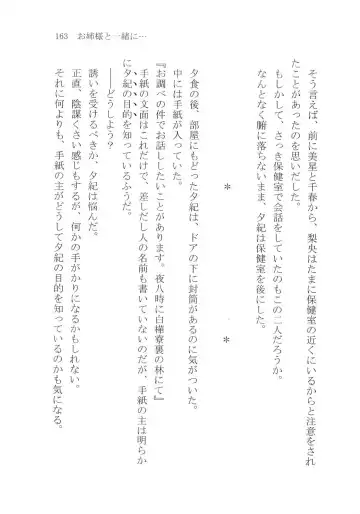 163　お姉様と一緒に…
そう言えば、前に美星と千春から、梨央はたまに保健室の近くにいるからと注意をされ
たことがあったのを思いだした。
もしかして、さっき保健室で会話をしていたのもこの二人だろうか。
なんとなく腑に落ちないまま、夕紀は保健室を後にした。
＊　＊
夕食の後、部屋にもどった夕紀は、ドアの下に封筒があるのに気がついた。
中には手紙が入っていた。
『お調べの件でお話ししたいことがあります。夜八時に白樺寮裏の林にて』
手紙の文面はこれだけで、差しだし人の名前も書いていないのだが、手紙の主は明らか
に夕紀の目的を知っているふうだ。
――どうしよう？
誘いを受けるべきか、夕紀は悩んだ。
正直、陰謀くさい感じもするが、何かの手がかりになるかもしれない。
それに何よりも、手紙の主がどうして夕紀の目的を知っているのかも気になる。